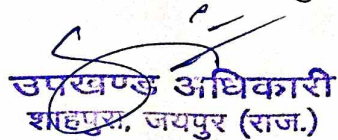 उपखण्ड अधिकारी
शाहपुरा, जयपुर (राज.)